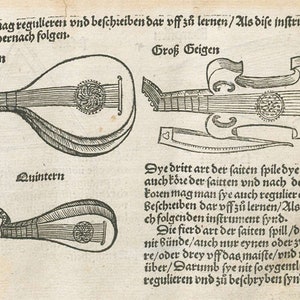 mag regulieren vnd beschreiben dar vff zů lernen/Als dise instru
hernach folgen.
Groß Geigen
Quintern
Dye dritt art der saiten spile dye
auch köre der saitten vnd nach de
koren mag man sye auch regulieren
Beschreiben dar vff zů lernen/Als
ch folgenden instrument synd.
Die fierd art der saiten spill/d
nit Bünde/auch nur eynen oder z
re/oder drey vff das maiste/vnd n
über/Darumb sye nit so eygentl
regulieren vnd zů beschryben synd